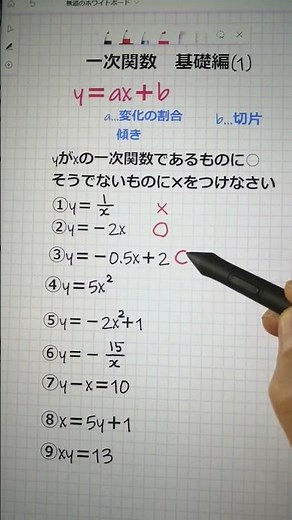 無題のホワイトボード
一次関数 基礎編(1)
y=ax+b
a...変化の割合 b...切片
傾き
yがxの一次関数であるものに○
そうでないものに×をつけなさい
①y=1/x ×
②y=-2x ○
③y=-0.5x+2 ○
④y=5x²
⑤y=-2x²+1
⑥y=-15/x
⑦y-x=10
⑧x=5y+1
⑨xy=13